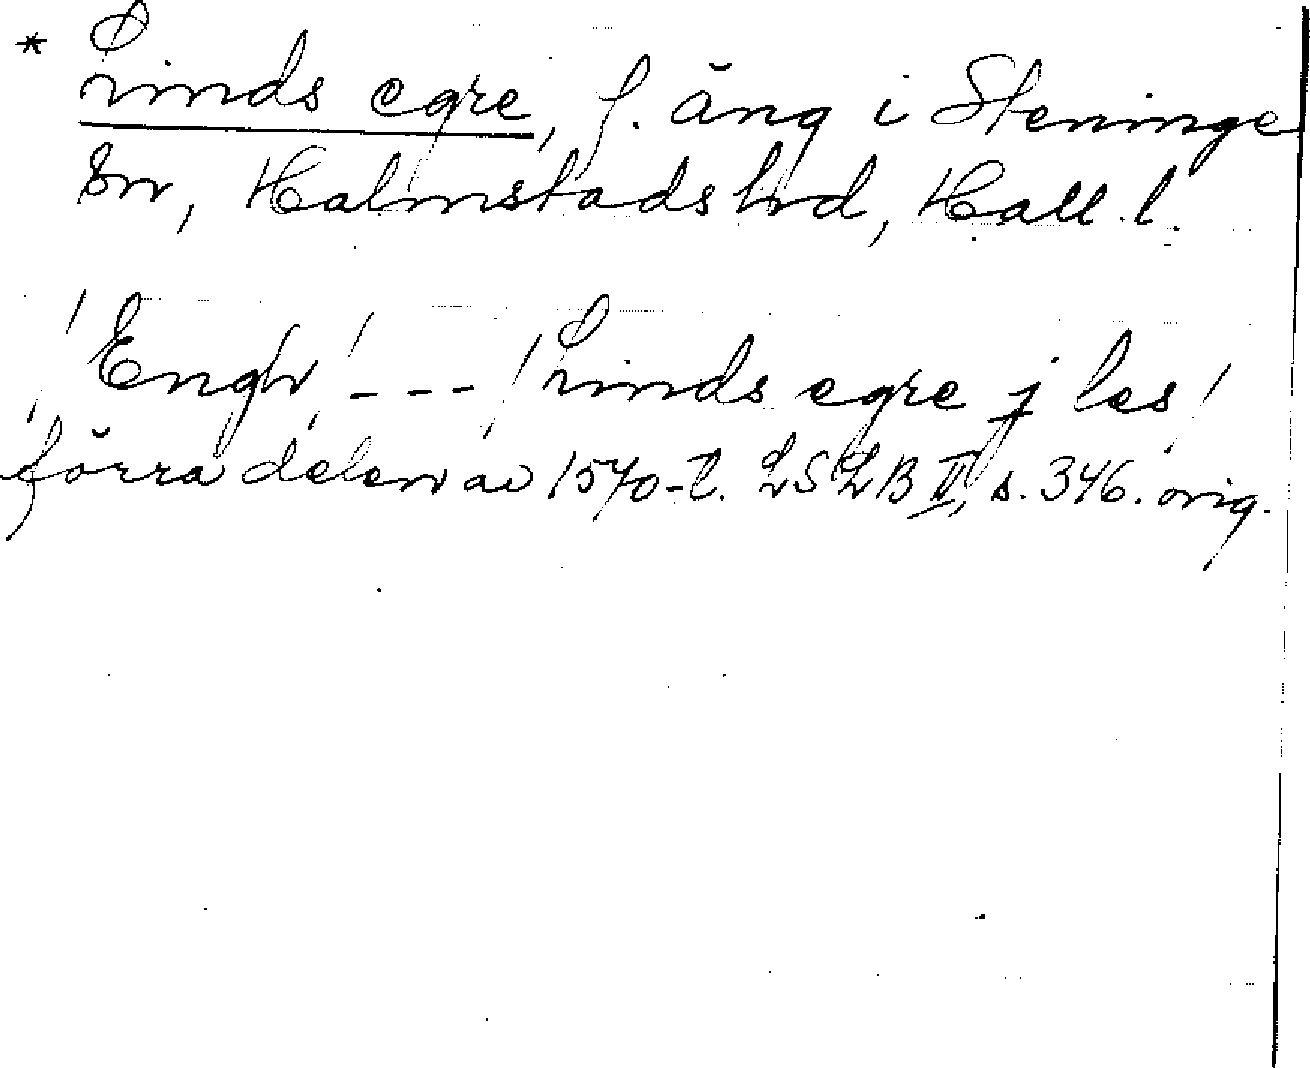 * Rinds egre, f. äng i Steninge
sn, Halmstads hrd, Hall. l.
/ Engh / --- / Rinds egre j les /
förra delen av 1570-t. LSLB II, s. 346. orig.